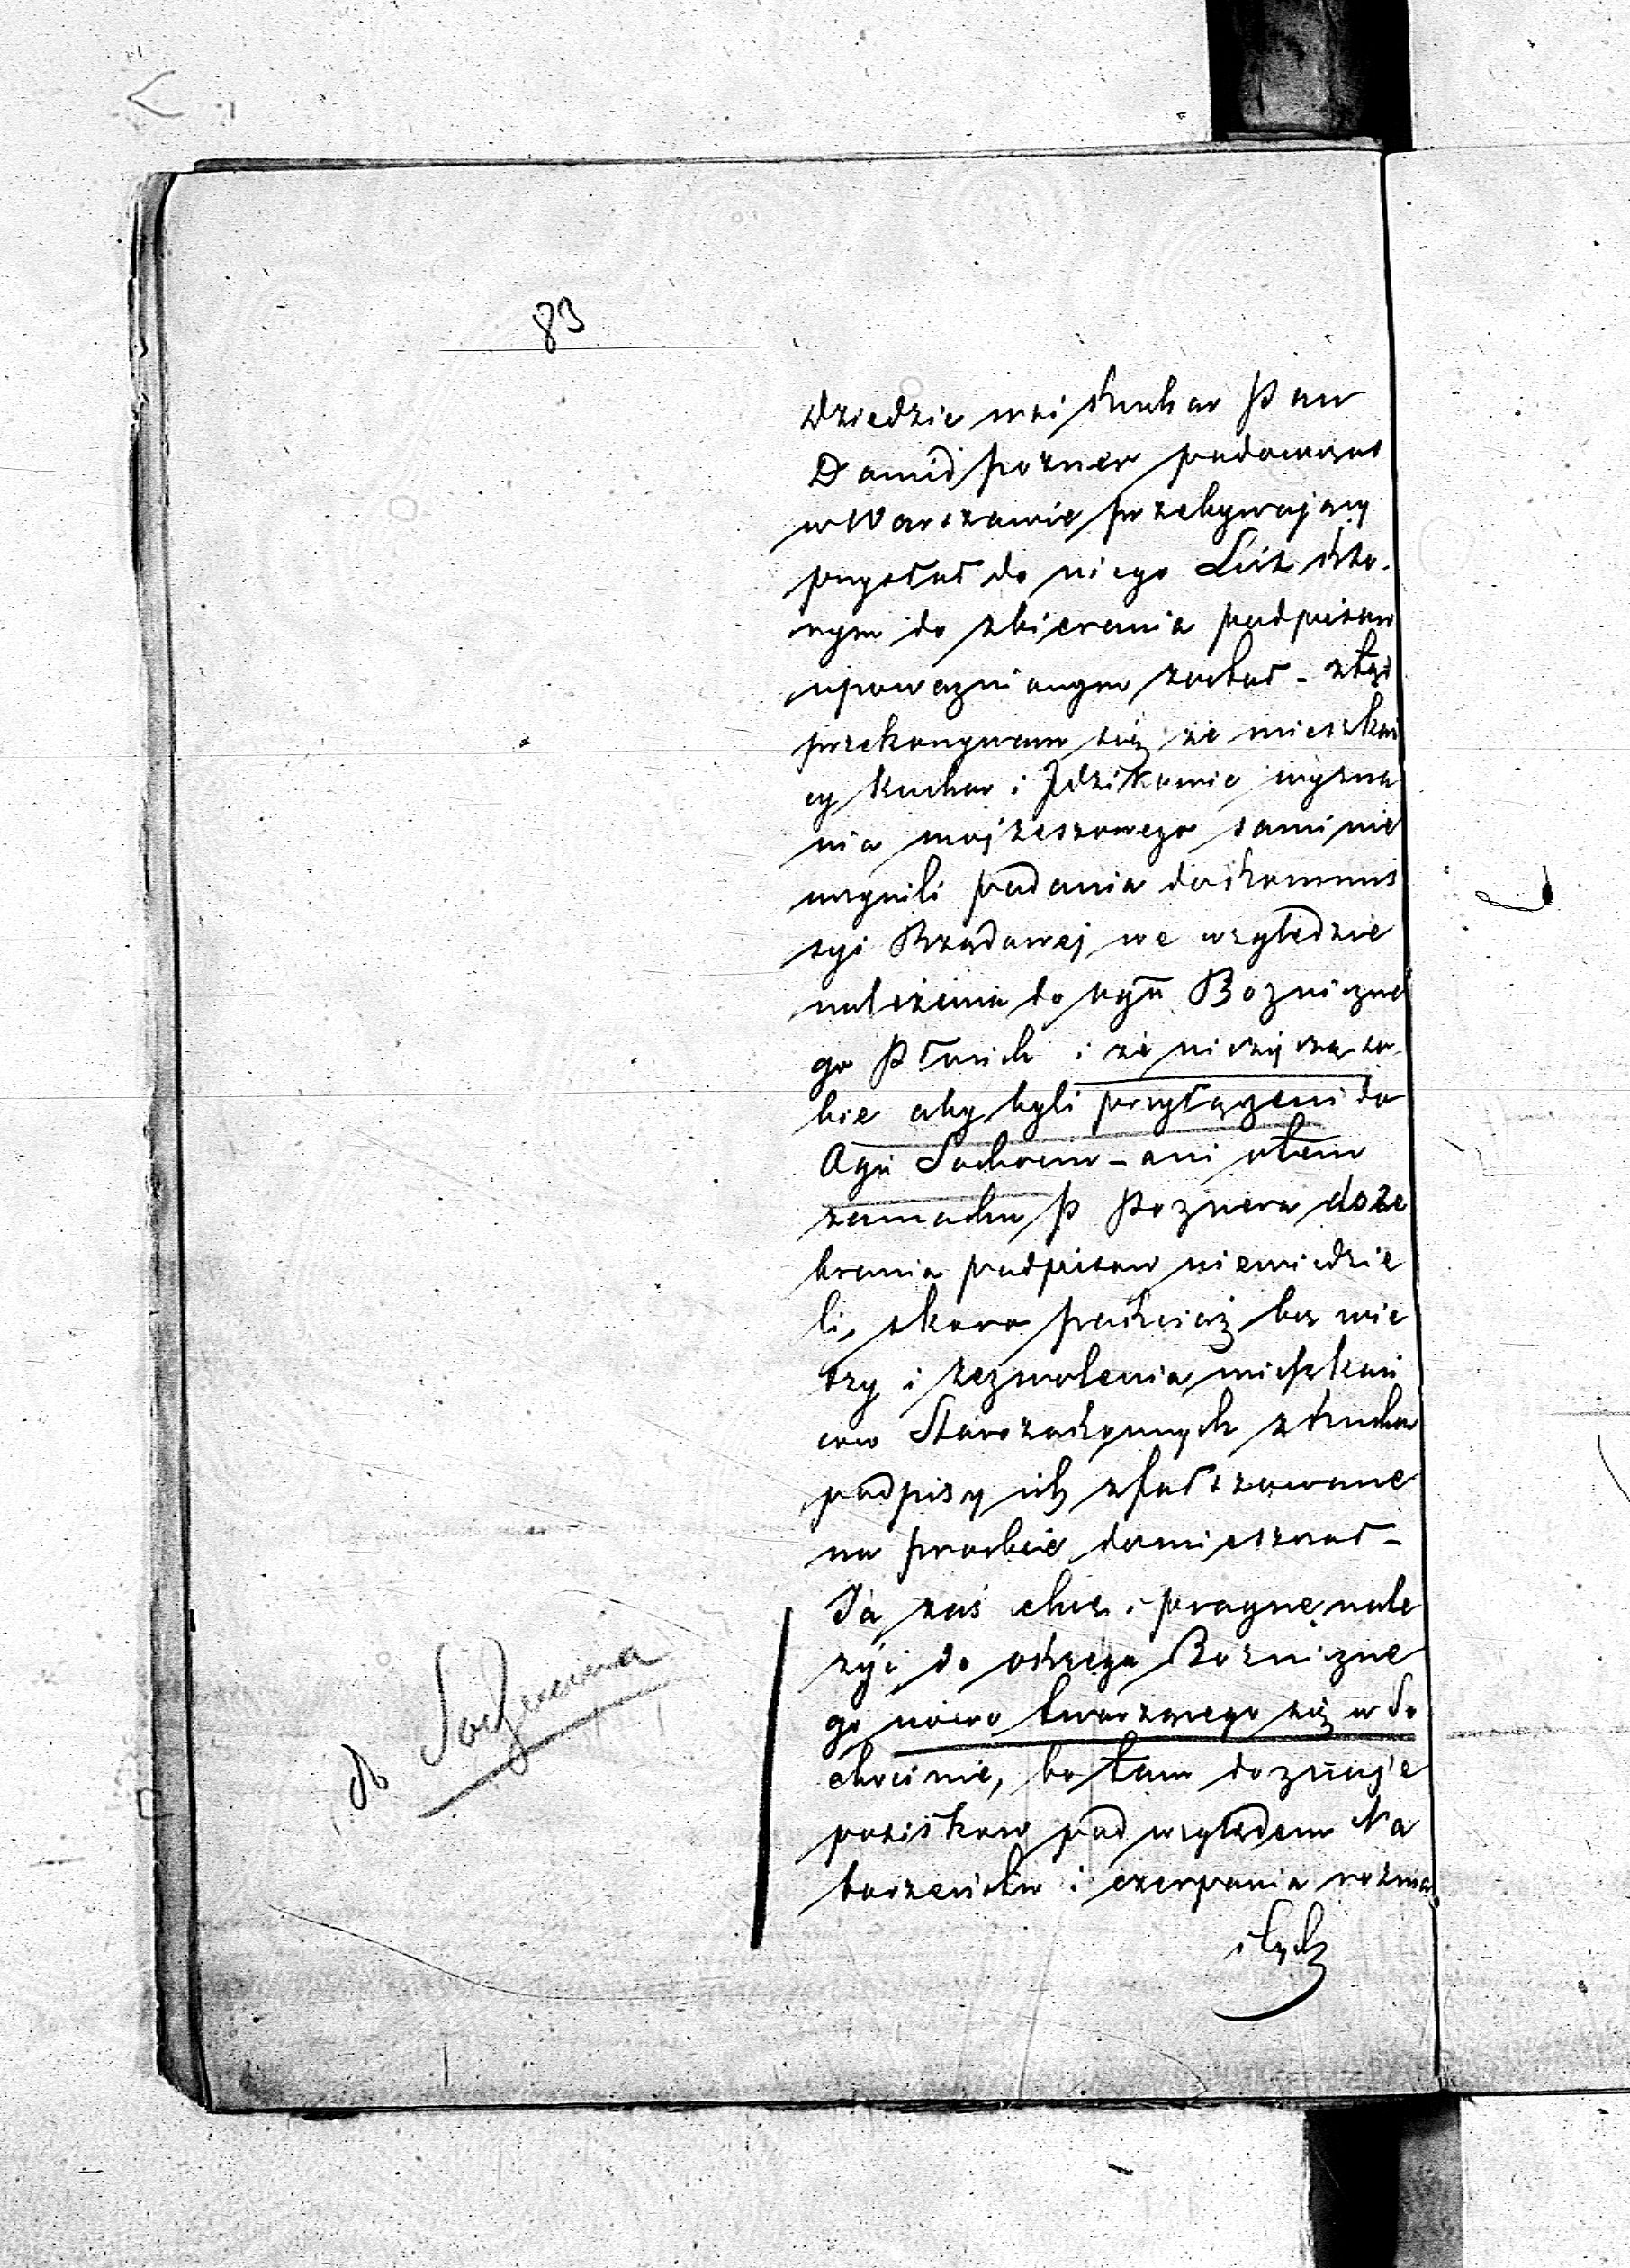 83
Dziedzic wsi Kuchar Pan
Dawid pozner podowczas
w Warszawie przebywający
przysłał do niego List kto-
rym do zbierania podpisow
upoważnionym został - ztąd
przekonywam się że mieszkań
cy Kuchar i Idzikowic wyzna
nia mojżeszowego sami nie
uczynili podania do kommis
syi Rządowej we względzie
należenia do Ogū Bożniczne
go Płuich i że niczyczą so-
bie aby byli przyłączeni do
Ogū Sochocin - ani otem
zamachu P Poznera do ze
brania podpisow niewiedzie
li, skoro pochciąż bez wie
dzy i zezwolenia mieszkań
cow Starozakonnych z Kuchar
podpisy ich sfałszowane
na prozbie domieszczał -
Ja zaś chcę i pragnę nale
żyć do okręgu Bożniczne
go nowo tworzącego się w So
chocinie, bo tam doznaję
pozistkow pod względem Na
bożeństw i czerpania rozma
itych
do Sochocina